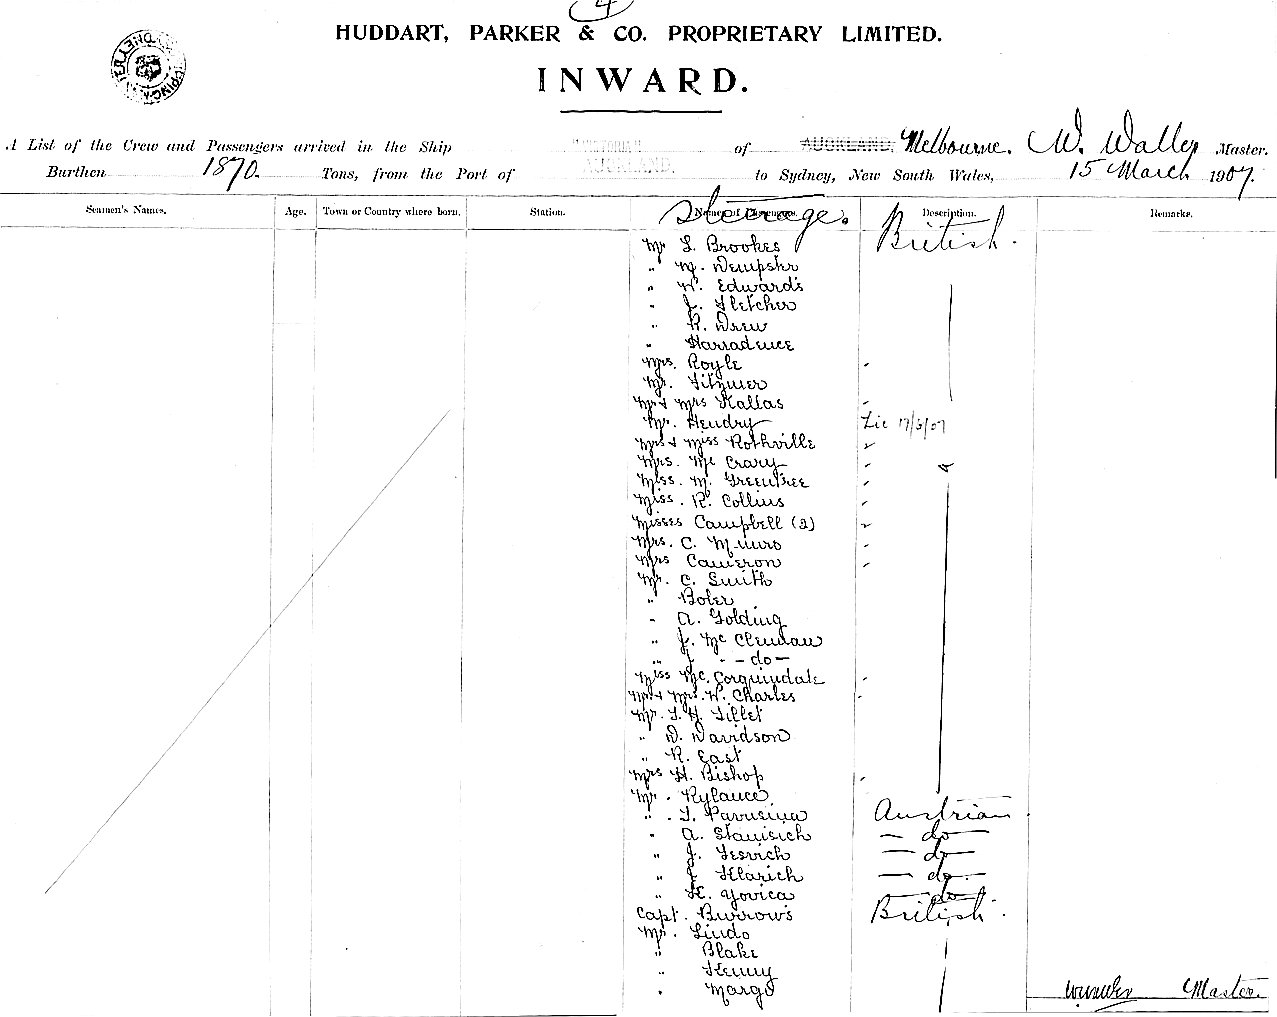 4
HUDDART, PARKER & CO. PROPRIETARY LIMITED.
INWARD.
A List of the Crew and Passengers arrived in the Ship "VICTORIA" of AUCKLAND. Melbourne. W. Waller Master.
Burthen 1870. Tons, from the Port of AUCKLAND. to Sydney, New South Wales, 15 March 1907.
Seamen's Names. Age. Town or Country where born. Station. Names of Passengers. Description. Remarks.
Steerage.
Mr L. Brookes British.
" M. Dempster
" W. Edwards
" J. Fletcher
" R. Drew
" Harradence
Mrs. Royle
Mr.
Mr & Mrs Kallas
Mr. Hendry 17/3/07
Mrs & Miss Rothville
Mrs. Mc Crary
Miss. M. Greentree
Miss. R. Collins
Misses Campbell (2)
Mrs. C. Munro
Mrs Cameron
Mr. C. Smith
" Boler
" A. Golding
" J. Mc Clendan
" J. - do -
Miss Mc. Corquindale
Mr & Mrs. W. Charles
Mr. T. H. Tillet
" D. Davidson
" R. East
Mrs H. Bishop
Mr. Rylance
" Austrian
" A. Stanisich - do -
" J. - do -
" J. Klarich - do -
" K. Yovica - do -
Capt. Burrows British.
Mr. Lindo
" Blake
" Henny
" Margo
Master.